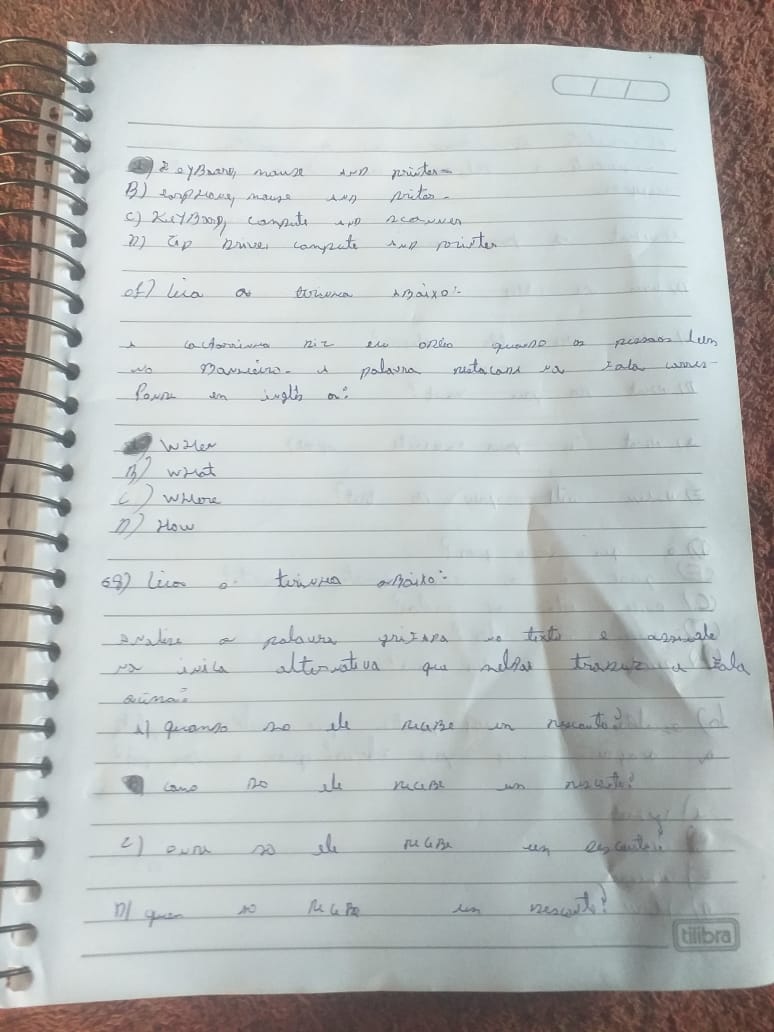 A) KeyBoard, mause AND printer-
B) earphone, mause AND priter-
C) KeyBoarD, compute AND scanner
D) CD Driver compute AND printer
07) Leia a tirinha ABAixo:-
A cachorrinha Diz eu odeio quando as pessoas
no Banheiro. A palavra Destacada na Fala corres-
Ponde em inglês a:
A) WHen
B) WHat
C) WHere
D) How
08) Leia a tirinha aBaixo:-
Analise a palavra griFADA no texto e assinale
na única alternativa que melhor traduz a Fala
acima:
A) quando Do ele recebe um Desconto?
B) como Do ele recebe um Desconto?
C) onde Do ele recebe um Desconto?
D) quem Do recebe um Desconto?
tilibra